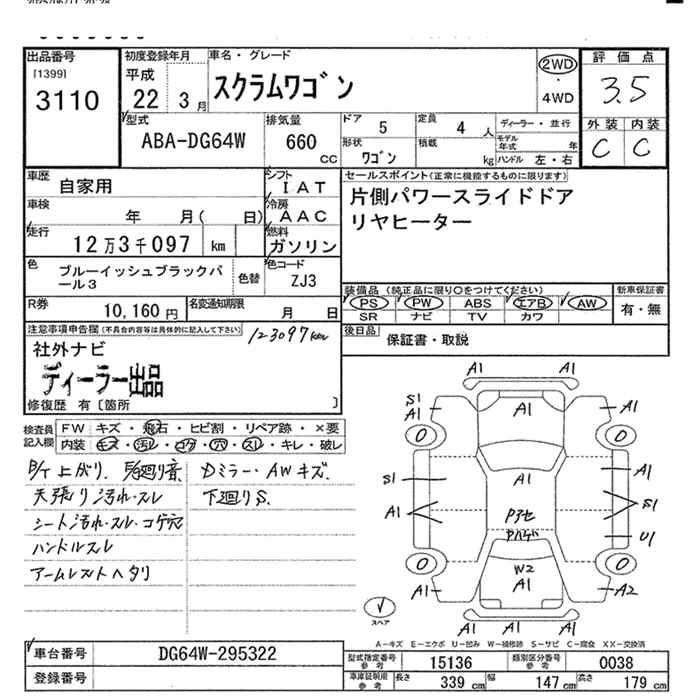 出品番号
[1399]
3110
初度登録年月
平成
22 3月
車名・グレード
スクラムワゴン
2WD
・
4WD
評価点
3.5
外装 内装
C C
型式
ABA-DG64W
排気量
660
cc
ドア 5
定員 4 人
ディーラー・並行
形状
ワゴン
積載 kg
モデル年式 年
ハンドル 左・右
車歴
自家用
シフト
IAT
車検
年 月( 日)
冷房
AAC
走行
12万3千097 km
燃料
ガソリン
色
ブルーイッシュブラックパール3
色替
色コード
ZJ3
R券
10,160円
名変通知期限
月 日
セールスポイント(正常に機能するものに限ります)
片側パワースライドドア
リヤヒーター
装備品(純正品に限り○をつけてください)
PS PW ABS エアB AW
SR ナビ TV カワ
新車保証書
有・無
後日品
保証書・取説
注意事項申告欄(不具合内容等は具体的に記入して下さい)
123097km
社外ナビ
ディーラー出品
修復歴 有〔箇所 〕
検査員記入欄
FW キズ・飛石・ヒビ割・リペア跡・×要
内装 キズ・汚レ・コゲ・穴・スレ・キレ・破レ
天張り汚れ・スレ
シート汚れ・スレ・コゲ穴
ハンドルスレ
アームレストヘタリ
Dミラー・AWキズ
下廻りS.
A1 A1
S1
A1
A1
A1
S1
A1
A1
A1
S1
U1
W2
A1
A1
A2
A1 A1
スペア
A-キズ E-エクボ U-凹み W-補修跡 S-サビ C-腐食 XX-交換済
車台番号
DG64W-295322
登録番号
型式指定番号参考
15136
類別区分番号参考
0038
車庫証明用参考
長さ 339cm
幅 147cm
高さ 179cm